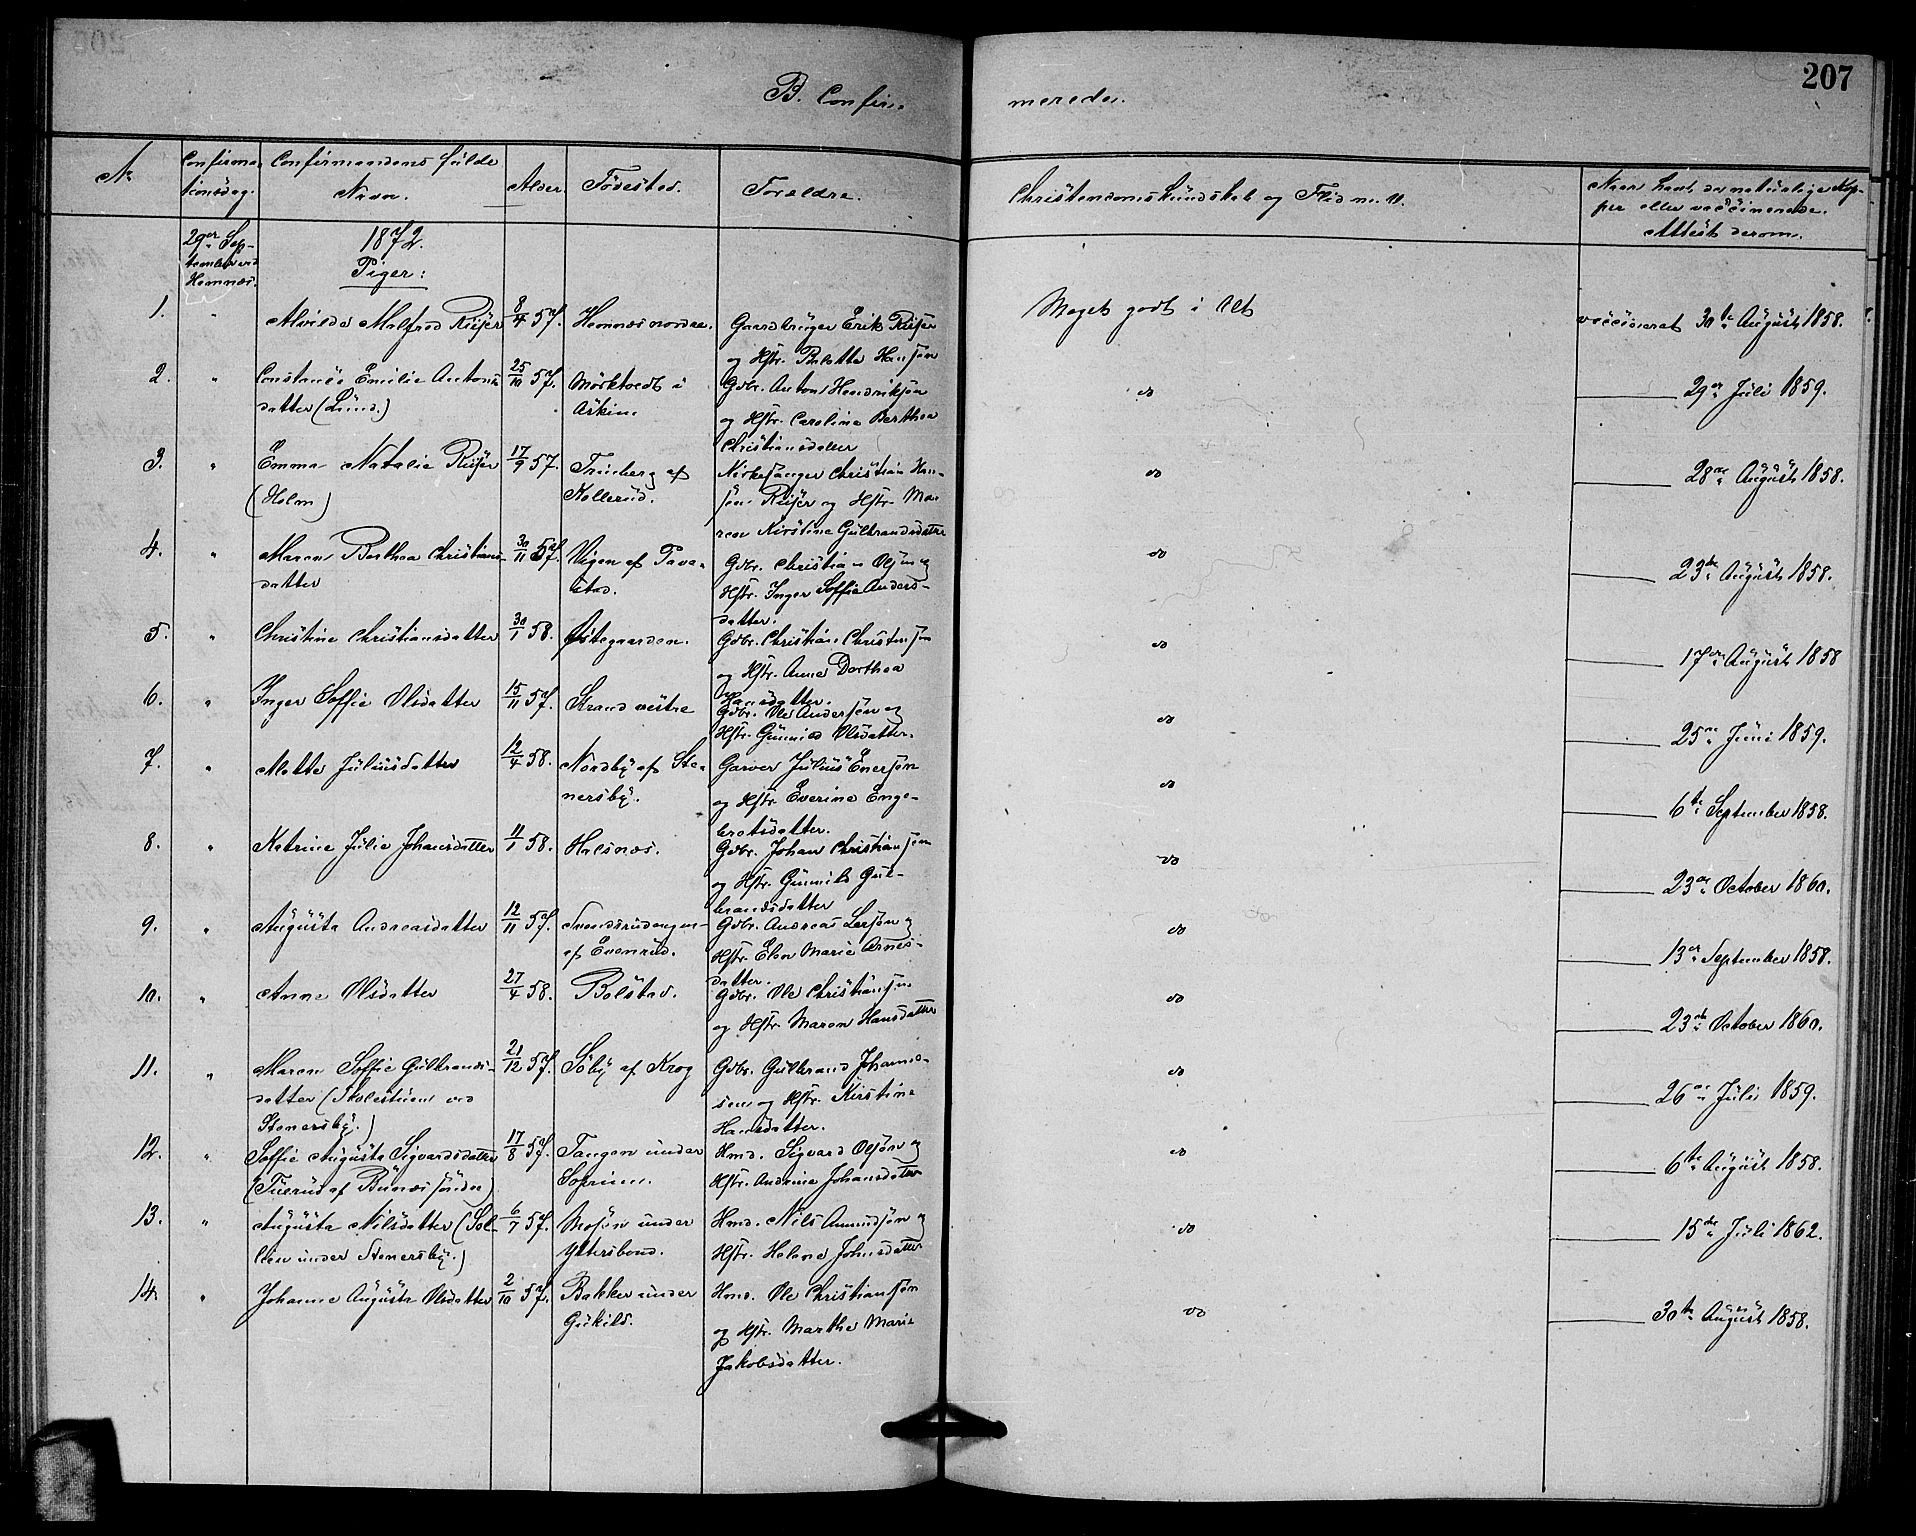 207
B. Confir-
merede.
No
Confirma-
tionsdag.
Confirmandens fulde
Navn.
Alder.
Fødested.
Forældre.
Christendomskundskab og Flid m. v.
Naar havt de naturlige Kop-
per eller vaccinerede.
Attest derom.
29de Sep-
tember ved
Hemnæs.
1872.
Piger:
1. " Alvilde Malfrid Riiser 8/4 57. Hemnæs nordre. Gaardbruger Erik Riiser
og Hstr. Belotte Hansdtr
Meget godt i Alt
vaccineret 30te August 1858.
2. " Constance Emilie Antons-
datter (Lund.)
25/10 57. Mörktvedt i
Askim.
Gdbr. Anton Hendriksen
og Hstr. Caroline Berthea
Christiansdatter
do
29de Juli 1859.
3. " Emma Natalie Riiser
(Holm)
17/9 57. Trinberg af
Kollerud.
Kirkesanger Christian Han-
sen Riiser og Hstr. Ma-
ren Kirstine Gulbrandsdatter
do
28de August 1858.
4. " Maren Berthea Christians-
datter
30/11 57. Vigen af Tave-
stad.
Gdbr. Christian Olsen og
Hstr. Inger Soffie Anders-
datter.
do
23de August 1858.
5. " Christine Christiansdatter 30/1 58. Østegaarden.
Gdbr. Christian Christensen
og Hstr. Anne Dorthea
Hansdatter.
do
17de August 1858
6. " Inger Soffie Olsdatter 15/11 57. Strand vestre
Gdbr. Ole Andersen og
Hstr. Gunnild Olsdatter.
do
25de Juni 1859.
7. " Mathe Juliusdatter 12/4 58. Nordby af Ste-
nersby.
Garver Julius Enersøn
og Hstr. Everine Enge-
bretsdatter.
do
6te September 1858.
8. " Katrine Julie Johansdatter 11/1 58. Halsnæs.
Gdbr. Johan Christiansen
og Hstr. Gunnild Gul-
brandsdatter
do
23de October 1860.
9. " Augusta Andreasdatter 12/11 57. Svendsrudengen
af Evenrud.
Gdbr. Andreas Larsøn og
Hstr. Elen Marie Arnes-
datter.
do
13de September 1858.
10. " Anne Olsdatter 27/4 58. Bolstad.
Gdbr. Ole Christiansen
og Hstr. Maren Hansdatter
do
23de October 1860.
11. " Maren Soffie Gulbrands-
datter (Skolestuen ved
Stenersby.)
21/12 57. Söby af Krog
Gdbr. Gulbrand Johannes-
sen og Hstr. Kirstine
Hansdatter.
do
26de Juli 1859.
12. " Soffie Augusta Sigvardsdatter
(Tuerud af Bunæs søndre)
17/8 57. Tangen under
Soprim.
Hmd. Sigvard Olsøn og
Hstr. Andrine Johansdatter
do
6te August 1858.
13. " Augusta Nilsdatter (Sol-
lien under Stenersby.)
6/7 57. Mosen under
Yttersbond.
Hmd. Nils Amundsøn og
Hstr. Helene Johnsdatter
do
15de Juli 1862.
14. " Johanne Augusta Olsdatter 2/10 57. Bakken under
Gukild.
Hmd. Ole Christiansøn
og Hstr. Marthe Marie
Jakobsdatter.
do
30te August 1858.